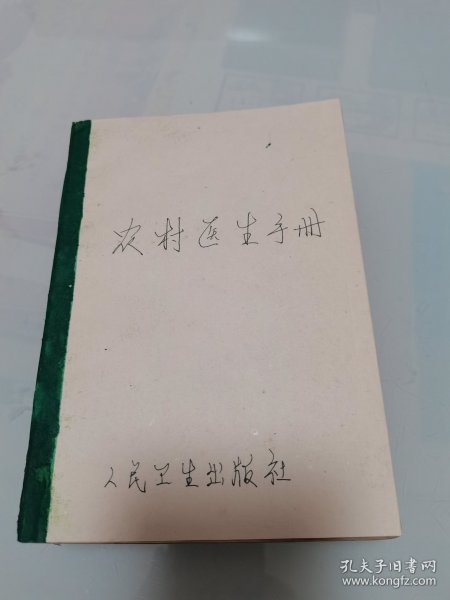 农村医生手册
人民卫生出版社
孔夫子旧书网
www.kongfz.com